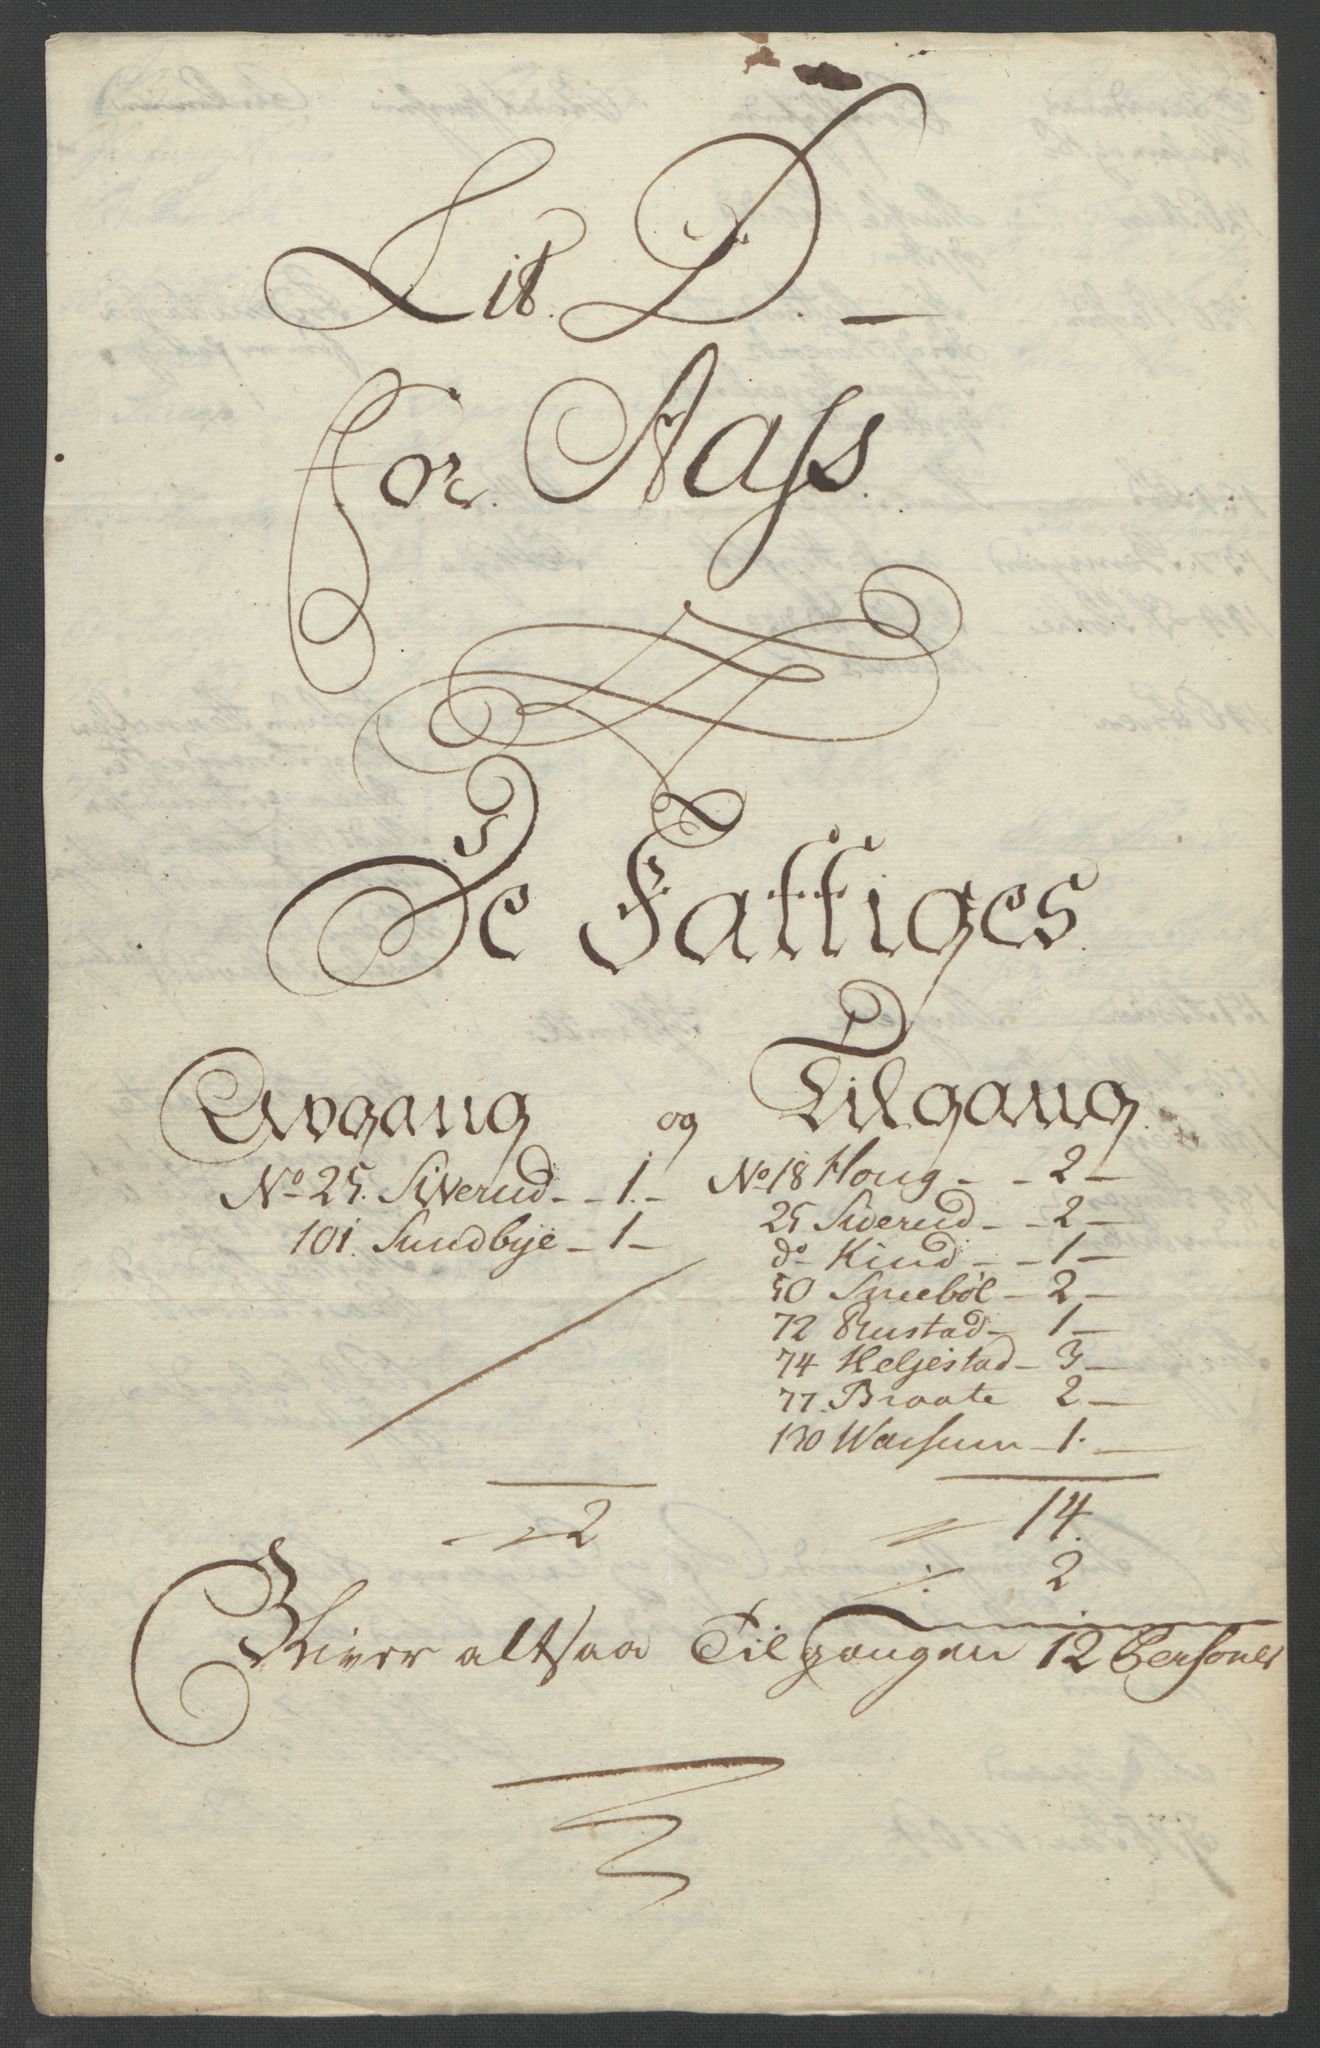 Lit. D. —
for Aass.
De Fattiges
Avgang og Tilgang.
No 25. Siverud - - 1. -
101. Sundbye - 1 -
No 18 Houg - - 2 -
25 Siverud - - 2 -
do Kind - - 1 -
50 Sneebøl - 2 -
72 Rustad - 1 -
74 Heljestad - 3 -
77. Braate 2 -
130 Warsum - 1. -
2
14.
2
Bliver altsaa Tilgangen 12 Personer